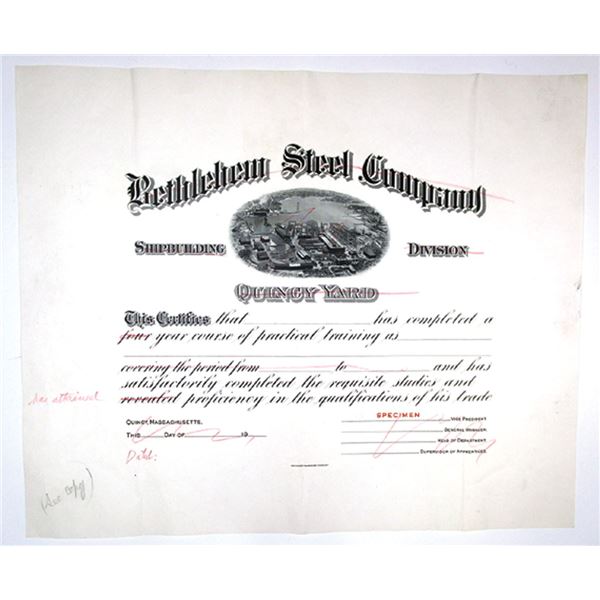 Bethlehem Steel Company
SHIPBUILDING DIVISION
QUINCY YARD
This Certifies that has completed a
four year course of practical training as
covering the period from to and has
satisfactorily completed the requisite studies and
has attained revealed proficiency in the qualifications of his trade
QUINCY, MASSACHUSETTS,
THIS DAY OF 19
Dated:
SPECIMEN
VICE PRESIDENT
GENERAL MANAGER
HEAD OF DEPARTMENT
SUPERVISOR OF APPRENTICES
(See copy)